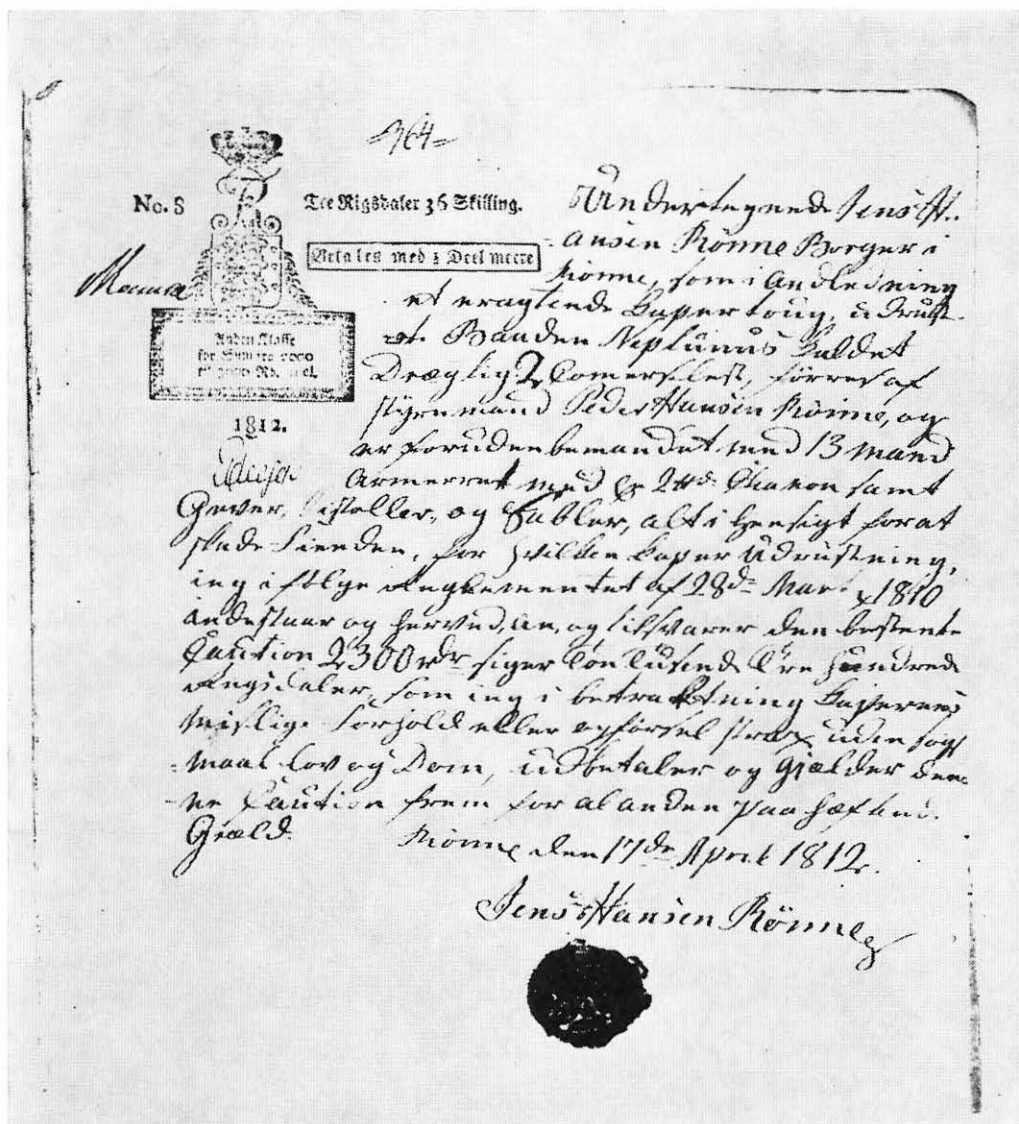 364
No. 8
Tre Rigsdaler 36 Skilling.
Betales med ½ Deel meere
Anden Klasse
for Summer 2000
til 3000 Rd. incl.
1812.
Undertegnede Jens H
-ansen Rönne Borger i
Rönne, som i Anledning
et eragtende Kapertoug, udrust
-et Baaden Neptunus kaldet
Drægtig 2 Comerselest, förres af
styrmand Peder Hansen Rönne, og
er foruden bemandet med 13 Mand
Armerret med 2 samt
Gever, Pistoller, og Sabler, alt i Hensigt for at
skade Fienden, for hvilken Kaper Udrustning,
ieg ifölge Reglementet af 28de Mar 1810
indestaar og herved, an, og tilsvarer den bestemte
Caution 2300 rdr siger Toe Tusende Tre Hundrede
Rigsdaler, som ieg i betraktning Kaperens
Mislige Forhold eller opförsel strax uden sögs
-maal Lov og Dom, udbetaler og Gjælder den-
-ne Caution frem for al anden paa hæftende
Giæld.
Rönne den 17de April 1812.
Jens Hansen Rönne